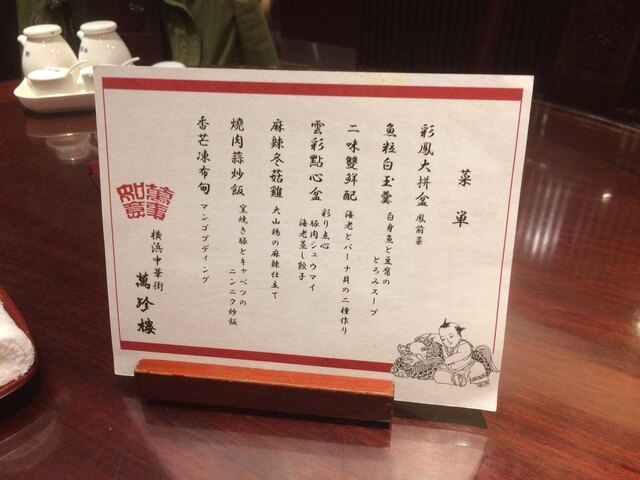 菜單
彩鳳大拼盆 鳳前菜
魚粒白玉羹 白身魚と豆腐の
とろみスープ
二味雙鮮配 海老とパーナ貝の二種作り
雲彩點心盒 彩り点心
豚肉シュウマイ
海老蒸し餃子
麻辣冬菇雞 大山鶏の麻辣仕立て
燒肉蒜炒飯 窯焼き豚とキャベツの
ニンニク炒飯
香芒凍布甸 マンゴプディング
萬事
如意
横浜中華街
萬珍樓